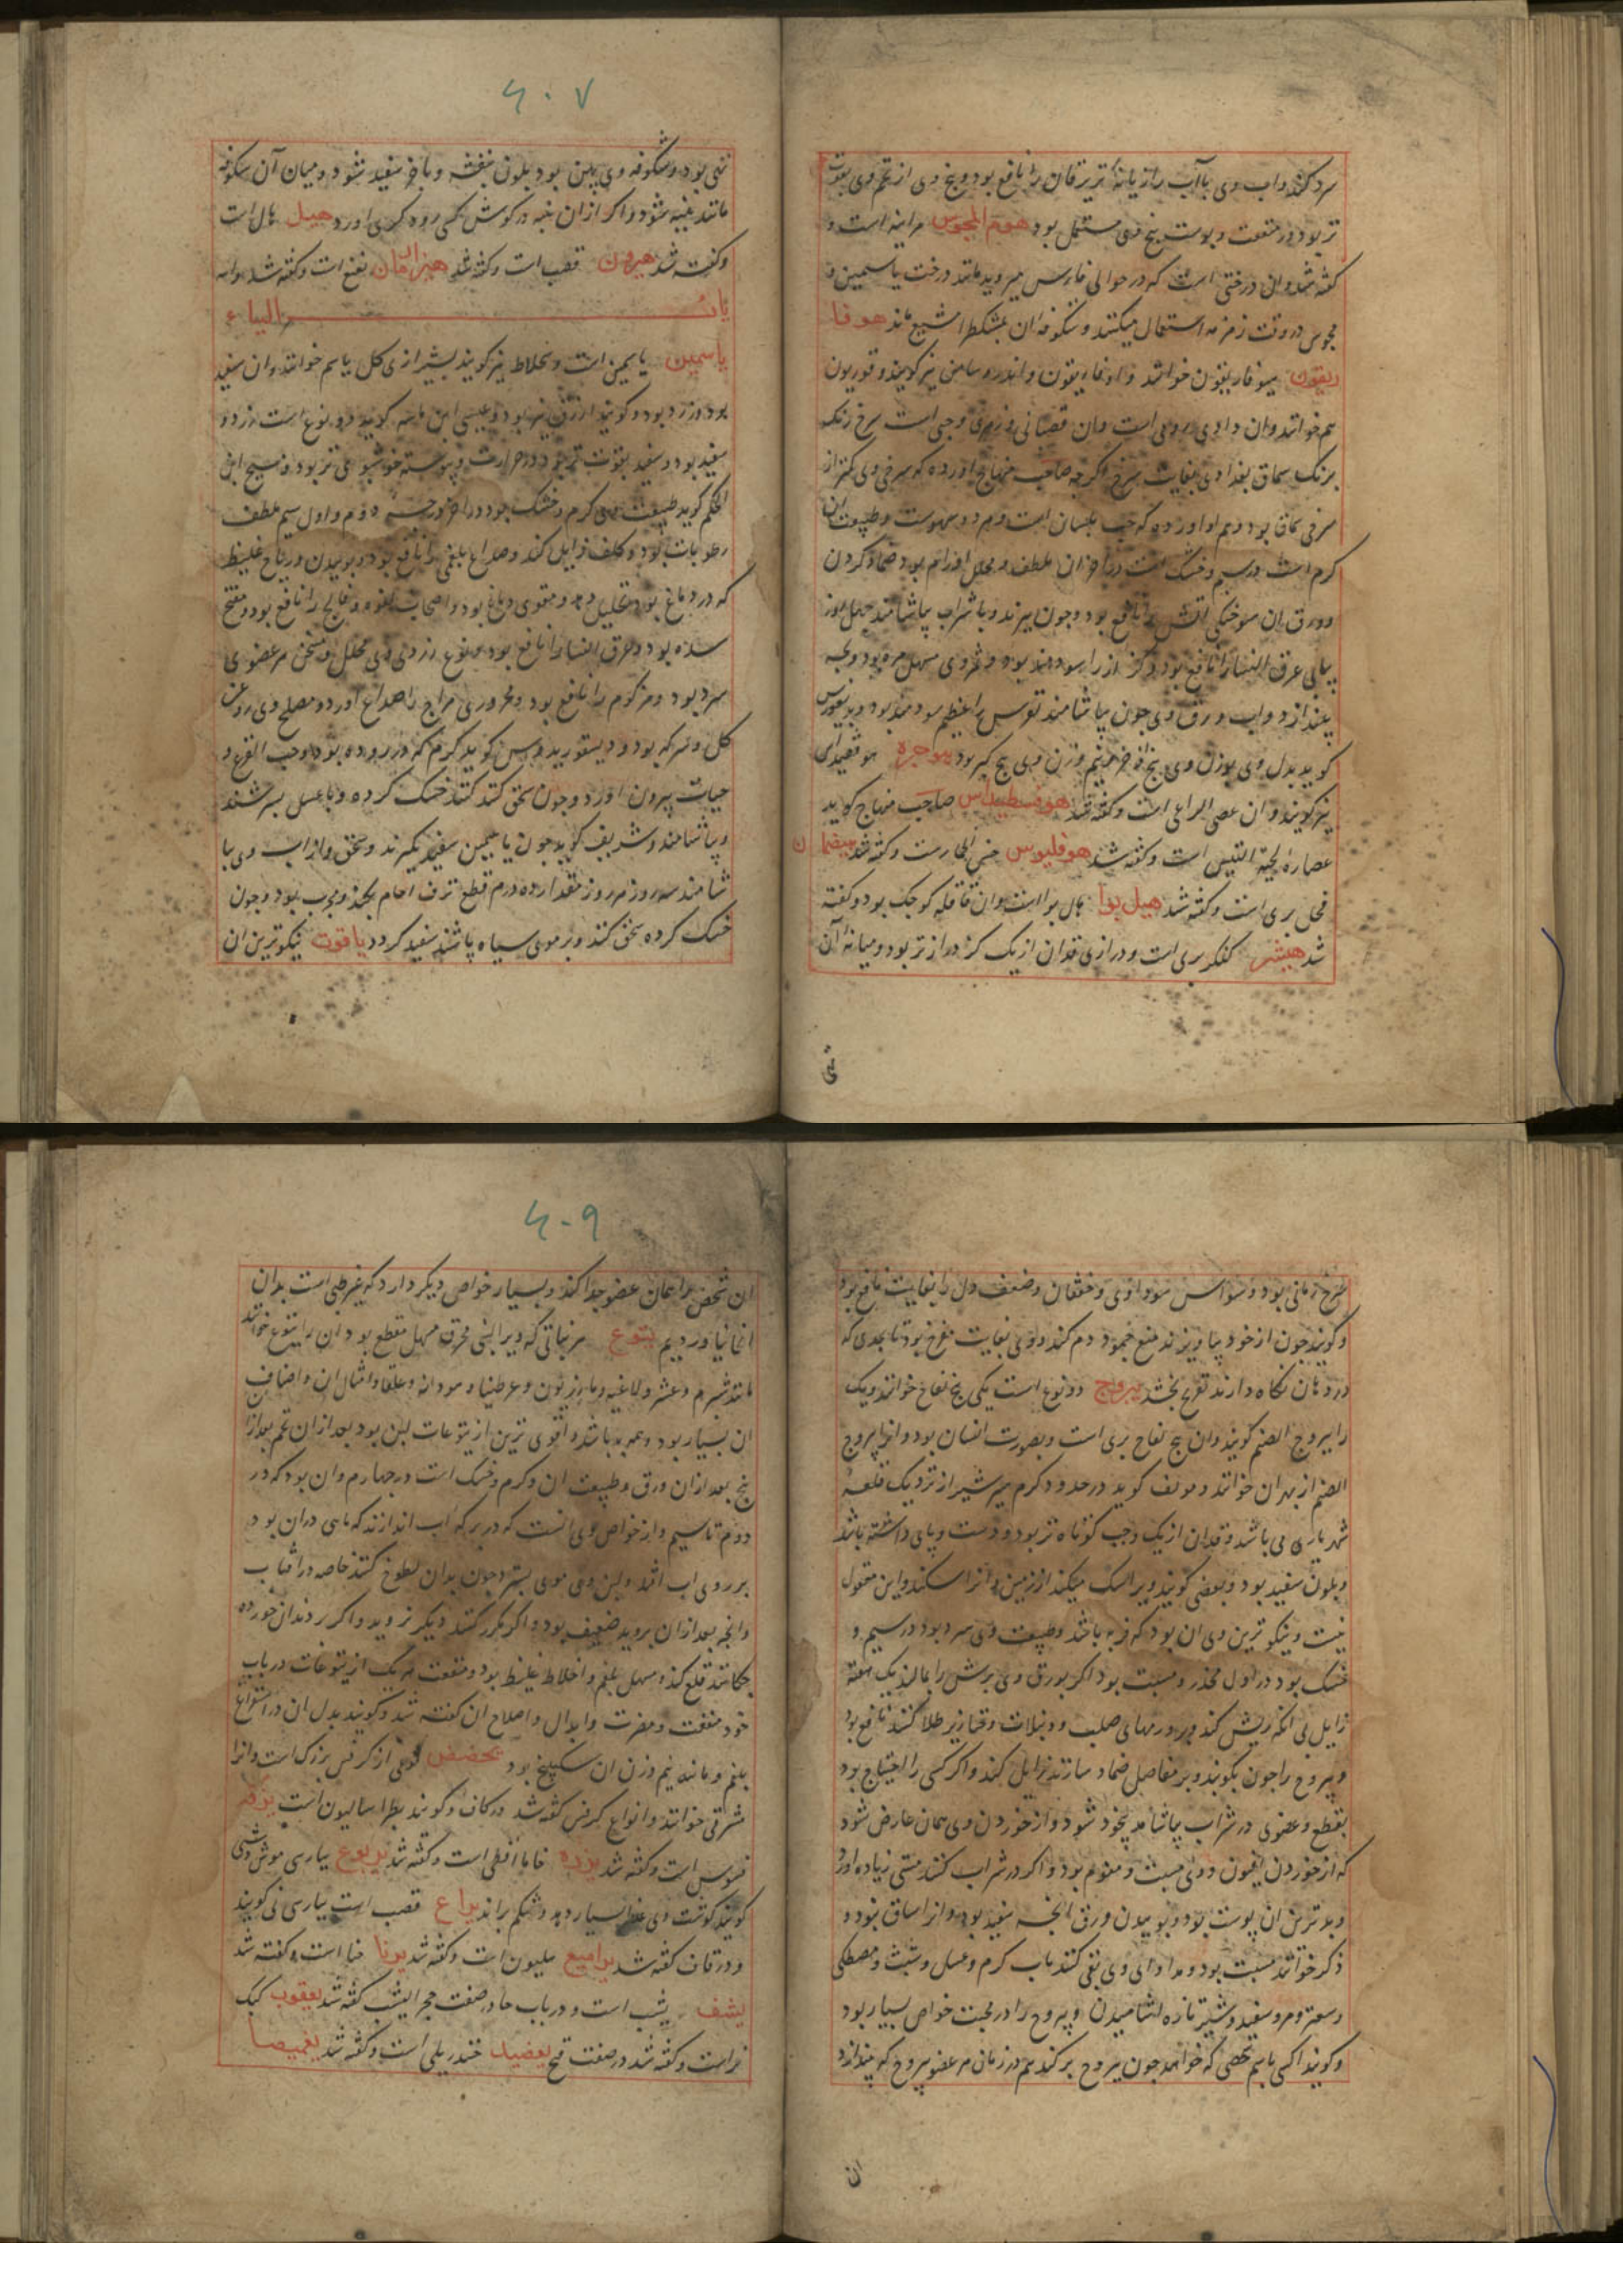 سرد کند و اب وی با آب رازیانه تر یرقان را نافع بود و بیخ وی از تخم وی بقوت
تر بود در منفعت و پوست بیخ وی مستعمل بود هوم المجوس مرانیه است و
گفته شد و ان درختی است که در حوالی فارس میروید مانند درخت یاسمین و
مجوس در وقت زمزمه استعمال میکنند و شکوفه ان بمشکطرامشیع ماند هوفا
ریقون هیوفاریقون خوانند و اوفاریقون و اندروسامن نیز گویند و قوریون
هم خوانند و ان دادی رومی است و ان قضبانی و زهری و حبی است سرخ رنک
برنک سماق بغدادی بغایت سرخ اگرچه صاحب منهاج اورده که سرخی وی کمتر از
سرخی سماق بود و هم او اورده که حب بلسان است و هر دو سهوست و طبیعت ان
کرم است در سیم و خشک است در اخر ان ملطف و محلل اورام بود ضماد کردن
و ورق ان سوختگی اتش را نافع بود و چون بپزند و با شراب بیاشامند چهل روز
پیاپی عرق النسا را نافع بود و کزاز را سودمند بود و ثمر وی مسهل مره بود و بچه
بیندازد و اب ورق وی چون بیاشامند نقرس را عظیم سودمند بود و دیسقوریدس
گوید بدل وی بوزن وی بیخ اذخر و نیم وزن وی بیخ کبر بود هیوجره هوقصیدای
نیز گویند و ان عصی الراعی است و گفته شد هوفسطیداس صاحب منهاج گوید
عصاره لحیة التیس است و گفته شد هوفلیوس خس الحمارست و گفته شد هیضمان
فجل بری است و گفته شد هیل بوا هال بوا است و ان قاقله کوچک بود و گفته
شد هیشر کنکر بری است و درازی قد ان از یک گز درازتر بود و میانه آن
نئی
۶۰۷
نئی بود و شکوفه وی پهن بود بلون بنفشه و باخر سفید شود و میان آن شکوفه
مانند پنبه شود و اگر از ان پنبه در گوش کسی رود کری اورد هیل هال است
و گفته شد هیرون قصب است و گفته شد هیزارمان نعنع است و گفته شد و الله
باب الیاء
یاسمین یاسمین است و سجلاط نیز گویند بشیرازی گل یاسم خوانند و ان سفید
بود و زرد بود و گویند ارزق نیز بود و عیسی ابن ماسه گوید دو نوع است زرد و
سفید بود و سفید بقوت تر بود در حرارت و پیوسته خوشبوی تر بود و مسیح ابن
الحکم گوید طبیعت وی کرم و خشک بود در اخر درجه دوم و اول سیم ملطف
رطوبات بود و کلف زایل کند و صداع بلغمی را نافع بود و بوییدن و ریاح غلیظ
که در دماغ بود تحلیل دهد و مقوی دماغ بود و اصحاب لقوه و فالج را نافع بود و مفتح
سده بود و عرق النسا را نافع بود و نوع زرد وی محلل و مسخن هر عضوی
سرد بود و مزکوم را نافع بود و محروری مزاج را صداع اورد و مصلح وی روغن
گل و سرکه بود و دیسقوریدوس گوید کرم که در روده بود و حب القرع و
حیات بیرون اورد و چون سحق کنند خشک کرده و با عسل بسرشند
و بیاشامند و شریف گوید چون یاسمین سفید بگیرند و سحق و از اب وی بیا
شامند سه روز هر روز مقدار ده درم قطع نزف ارحام بکند و مجرب بود و چون
خشک کرده سحق کنند و بر موی سیاه پاشند سفید گردد یاقوت نیکوترین ان
سرخ رمانی بود و وسواس سوداوی و خفقان و ضعف دل را بغایت نافع بود
و گویند چون از خود بیاویزند منع جمود دم کند و وی بغایت مفرح بود تا بحدی که
در دهان نگاه دارند تفریح بخشد یبروج دو نوع است یکی بیخ لفاح خوانند و یک
را یبروج الصنم گویند و ان بیخ لفاح بری است و بصورت انسان بود و انرا یبروج
الصنم از بهر ان خوانند و مولف گوید در حدود کرم سیر شیراز نزدیک قلعه
شهریاری می باشد و قد ان از یک وجب کوتاه تر بود و دست و پای داشته باشد
و بلون سفید بود و بعضی گویند ویرا سک میکند از زمین و انرا سکند و این معقول
نیست و نیکوترین وی ان بود که فربه باشد و طبیعت وی سرد بود در سیم و
خشک بود در اول مخدر و مسبت بود اگر بورق وی برش را بمالند یک هفته
زایل بی انکه ریش کند و بر ورمهای صلب و دبیلات و خنازیر طلا کنند نافع بود
و یبروح را چون بکوبند و بر مفاصل ضماد سازند زایل کند و اگر کسی را احتیاج بود
بقطع عضوی در شراب بیاشامد بیخود شود و از خوردن وی همان عارض شود
که از خوردن افیون و وی مسبت و منوم بود و اگر در شراب کنند مستی زیاده اورد
و بدترین ان پوست بود و بوییدن ورق انچه سفید بود و انرا ساق نبود و
ذکر خوانند مسبت بود و مداوای وی بقی کنند باب کرم و عسل و شبت و مصطکی
و سعتر و مرو سفید و شیر تازه اشامیدن و یبروح را در محبت خواص بسیار بود
و گویند اگر کسی باسم شخصی که خواهد چون یبروح برکند هم در زمان هر عضو یبروح که بیندازد
ان
۶۰۹
ان شخص را همان عضو جدا کند و بسیار خواص دیگر دارد که غیر طبی است بدان
انجا نیاوردیم یتوع هر نباتی که ویرا لبنی محرق مسهل مقطع بود ان را یتوع خوانند
مانند شبرم و عشر و لاغیه و مازریون و عرطنیثا و ماهودانه و علقا و امثال ان و اصناف
ان بسیار بود و همه بد باشد و اقوی ترین از یتوعات لبن بود بعد از ان تخم بعد از ان
بیخ بعد از ان ورق و طبیعت ان و کرم و خشک است در چهارم و ان بود که در
دوم تا سیم و از خواص وی انست که در برکه اب اندازند که ماهی در ان بود
بر روی اب افتد و لبن وی موی بسترد چون بدان لطوخ کنند خاصه در افتاب
و انچه بعد از ان بروید ضعیف بود و اگر مکرر کنند دیگر نروید و اگر بر دندان خورده
چکانند قلع کند و مسهل بلغم و اخلاط غلیظ بود و منفعت هر یک از یتوعات در باب
خود منفعت و مضرت و ابدال و اصلاح ان گفته شد و گویند بدل ان در استفراغ
بلغم و مائیه نیم وزن ان سکبینج بود یخضض نوعی از کرفس بزرگ است و انرا
مشرقی خوانند و انواع کرفس گفته شد در کاف و گویند بطراسالیون است
است و گفته شد یذره فاما افطی است و گفته شد یربوع بپارسی موش دشتی
گویند گوشت وی غذا بسیار دهد و شکم براند یراع قصب است بپارسی نی گویند
و در قاف گفته شد یرامیع هلیون است و گفته شد یرنا حنا است و گفته شد
یشف یشب است و در باب حا در صفت حجر الیشب گفته شد یعقوب کبک
نر است و گفته شد در صفت قبج یعضید خندریلی است و گفته شد یغمیصا